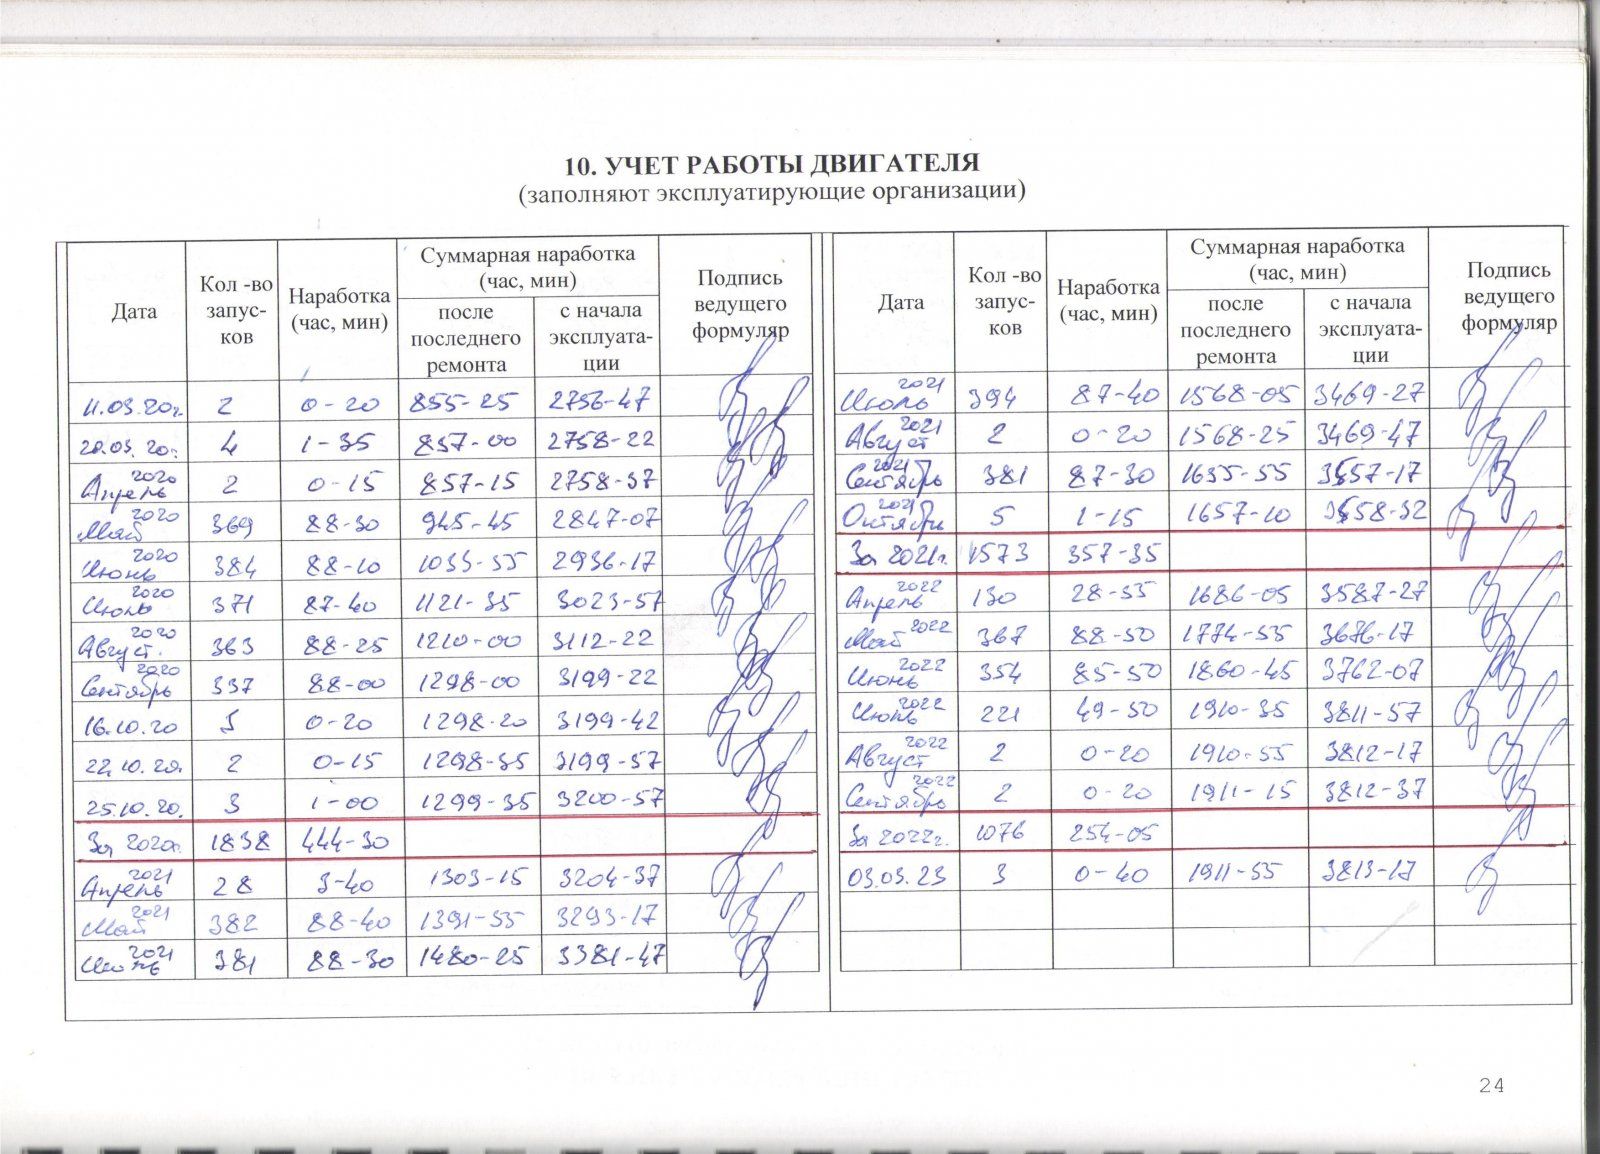 10. УЧЕТ РАБОТЫ ДВИГАТЕЛЯ
(заполняют эксплуатирующие организации)
Дата Кол -во запус- ков Наработка (час, мин) Суммарная наработка (час, мин) после последнего ремонта с начала эксплуата- ции Подпись ведущего формуляр
11.03.20г. 2 0-20 855-25 2756-47
20.03.20г. 4 1-35 857-00 2758-22
Апрель 2020 2 0-15 857-15 2758-37
Май 2020 369 88-30 945-45 2847-07
Июнь 2020 384 88-10 1033-55 2936-17
Июль 2020 371 87-40 1121-35 3023-57
Август. 2020 363 88-25 1210-00 3112-22
Сентябрь 2020 337 88-00 1298-00 3199-22
16.10.20 5 0-20 1298-20 3199-42
22.10.20. 2 0-15 1298-35 3199-57
25.10.20. 3 1-00 1299-35 3200-57
За 2020г. 1838 444-30
Апрель 2021 28 3-40 1303-15 3204-37
Май 2021 382 88-40 1391-55 3293-17
Июнь 2021 381 88-30 1480-25 3381-47
Дата Кол -во запус- ков Наработка (час, мин) Суммарная наработка (час, мин) после последнего ремонта с начала эксплуата- ции Подпись ведущего формуляр
Июль 2021 394 87-40 1568-05 3469-27
Август 2021 2 0-20 1568-25 3469-47
Сентябрь 2021 381 87-30 1655-55 3557-17
Октябрь 2021 5 1-15 1657-10 3558-32
За 2021г. 1573 357-35
Апрель 2022 130 28-55 1686-05 3587-27
Май 2022 367 88-50 1774-55 3676-17
Июнь 2022 354 85-50 1860-45 3762-07
Июль 2022 221 49-50 1910-35 3811-57
Август 2022 2 0-20 1910-55 3812-17
Сентябрь 2022 2 0-20 1911-15 3812-37
За 2022г. 1076 254-05
03.03.23 3 0-40 1911-55 3813-17
24